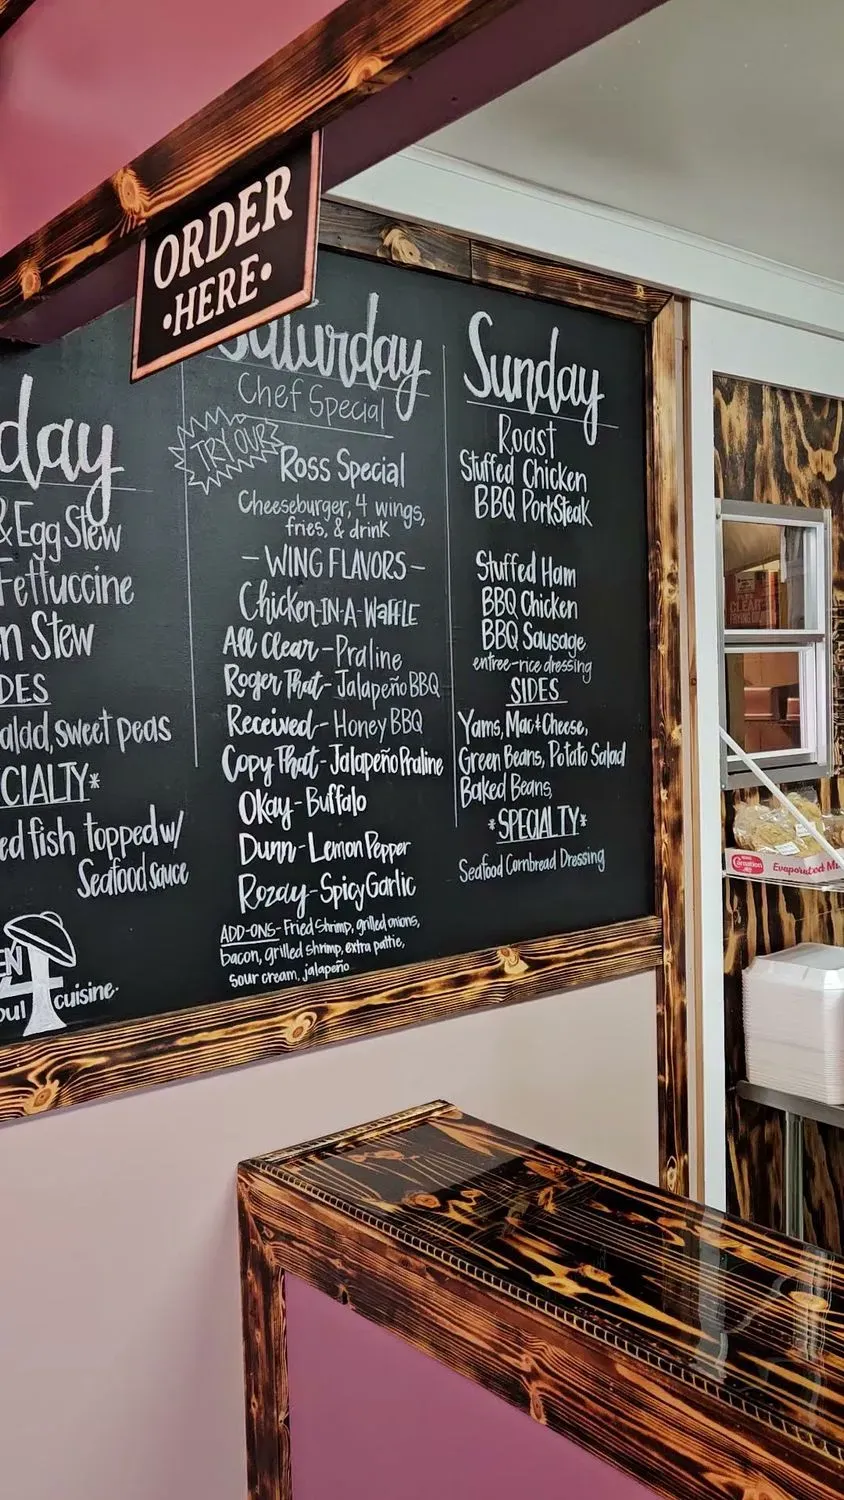 ORDER
•HERE•
day
& Egg Stew
Fettuccine
n Stew
DES
alad, sweet peas
CIALTY*
ed fish topped w/
Seafood sauce
EN
4
oul cuisine.
Saturday
Chef Special
TRY OUR
Ross Special
Cheeseburger, 4 wings,
fries, & drink
- WING FLAVORS -
Chicken-IN-A-WAFFLE
All Clear - Praline
Roger That - Jalapeño BBQ
Received - Honey BBQ
Copy That - Jalapeño Praline
Okay - Buffalo
Dunn - Lemon Pepper
Rozay - Spicy Garlic
ADD-ONS - Fried Shrimp, grilled onions,
bacon, grilled shrimp, extra pattie,
sour cream, jalapeño
Sunday
Roast
Stuffed Chicken
BBQ PorkSteak
Stuffed Ham
BBQ Chicken
BBQ Sausage
entree-rice dressing
SIDES
Yams, Mac & Cheese,
Green Beans, Potato Salad
Baked Beans,
*SPECIALTY*
Seafood Cornbread Dressing
CLEAR
Carnation
Evaporated Mi